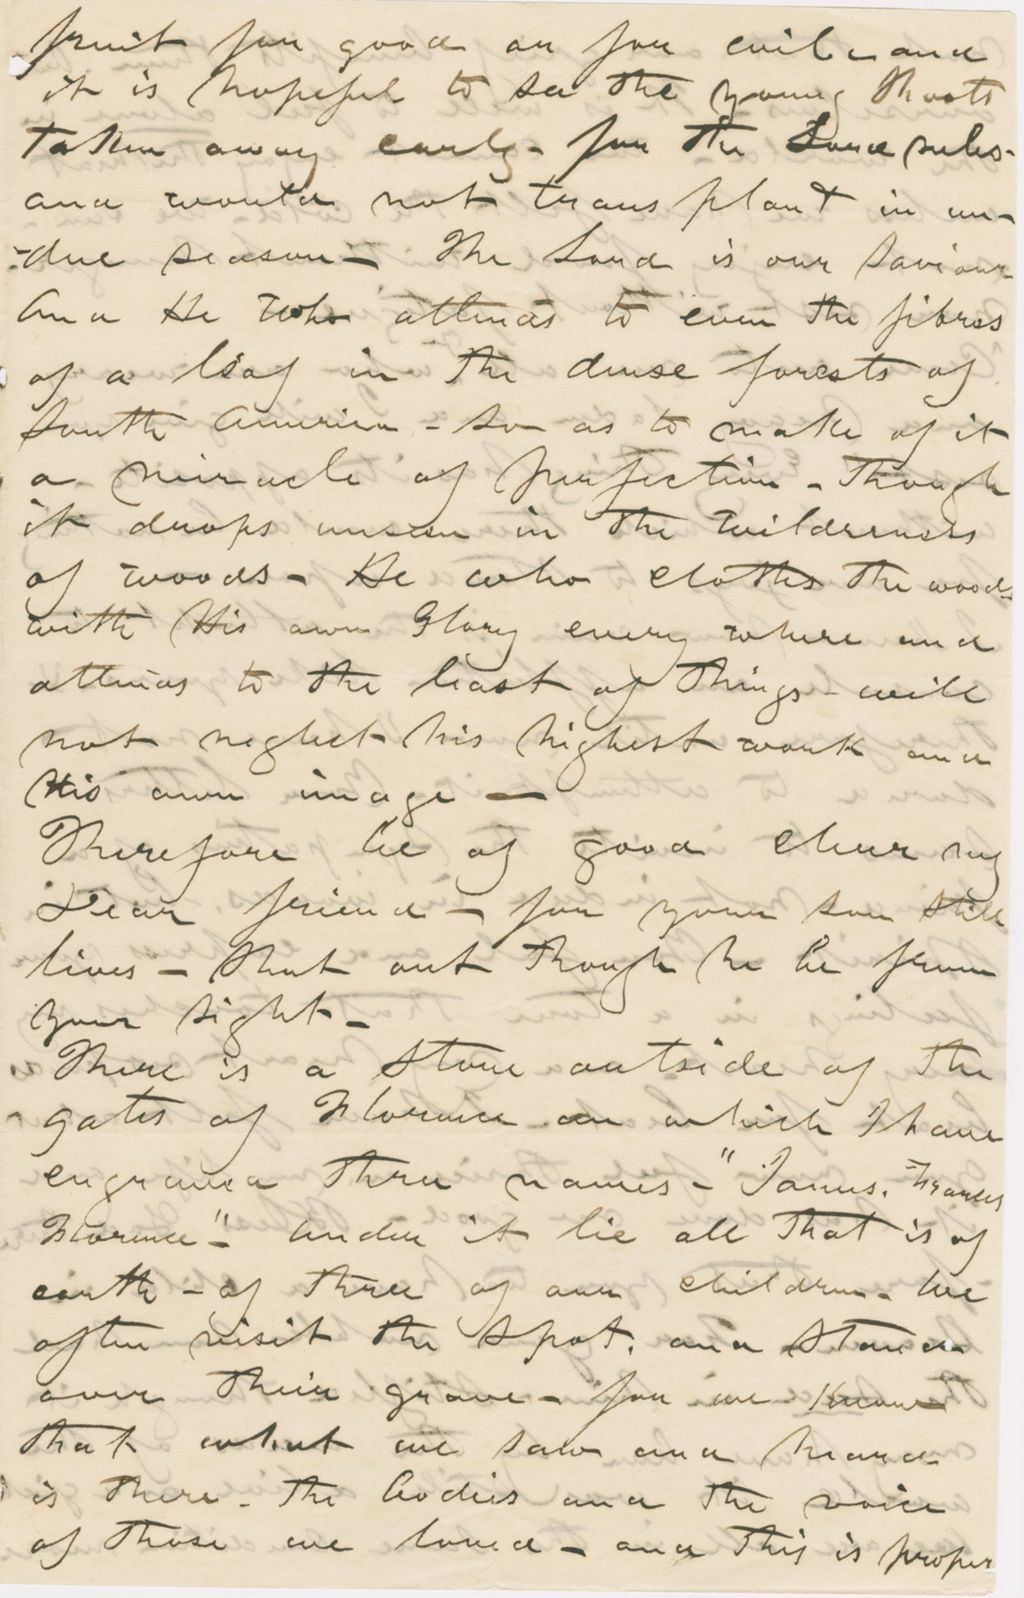 fruit for good or for evil - and
it is hopeful to see the young shoots
taken away early - for the Lord rules -
and would not transplant in un-
-due season - The Lord is our Saviour
And He who attends to even the fibres
of a leaf in the dense forests of
South America - so as to make of it
a miracle of perfection - though
it drops unseen in the wilderness
of woods - He who clothes the woods
with His own Glory every where and
attends to the least of things - will
not neglect his highest work and
His own image -
Therefore be of good cheer my
Dear friend - for your son still
lives - shut out though he be from
your sight -
There is a stone outside of the
gates of Florence on which I have
engraved three names - "James. Frances
Florence" - Under it lie all that is of
earth - of three of our children. We
often visit the spot. and stand
over their grave - for we know
that what we saw and heard
is there - the bodies and the voice
of those we loved - and this is proper